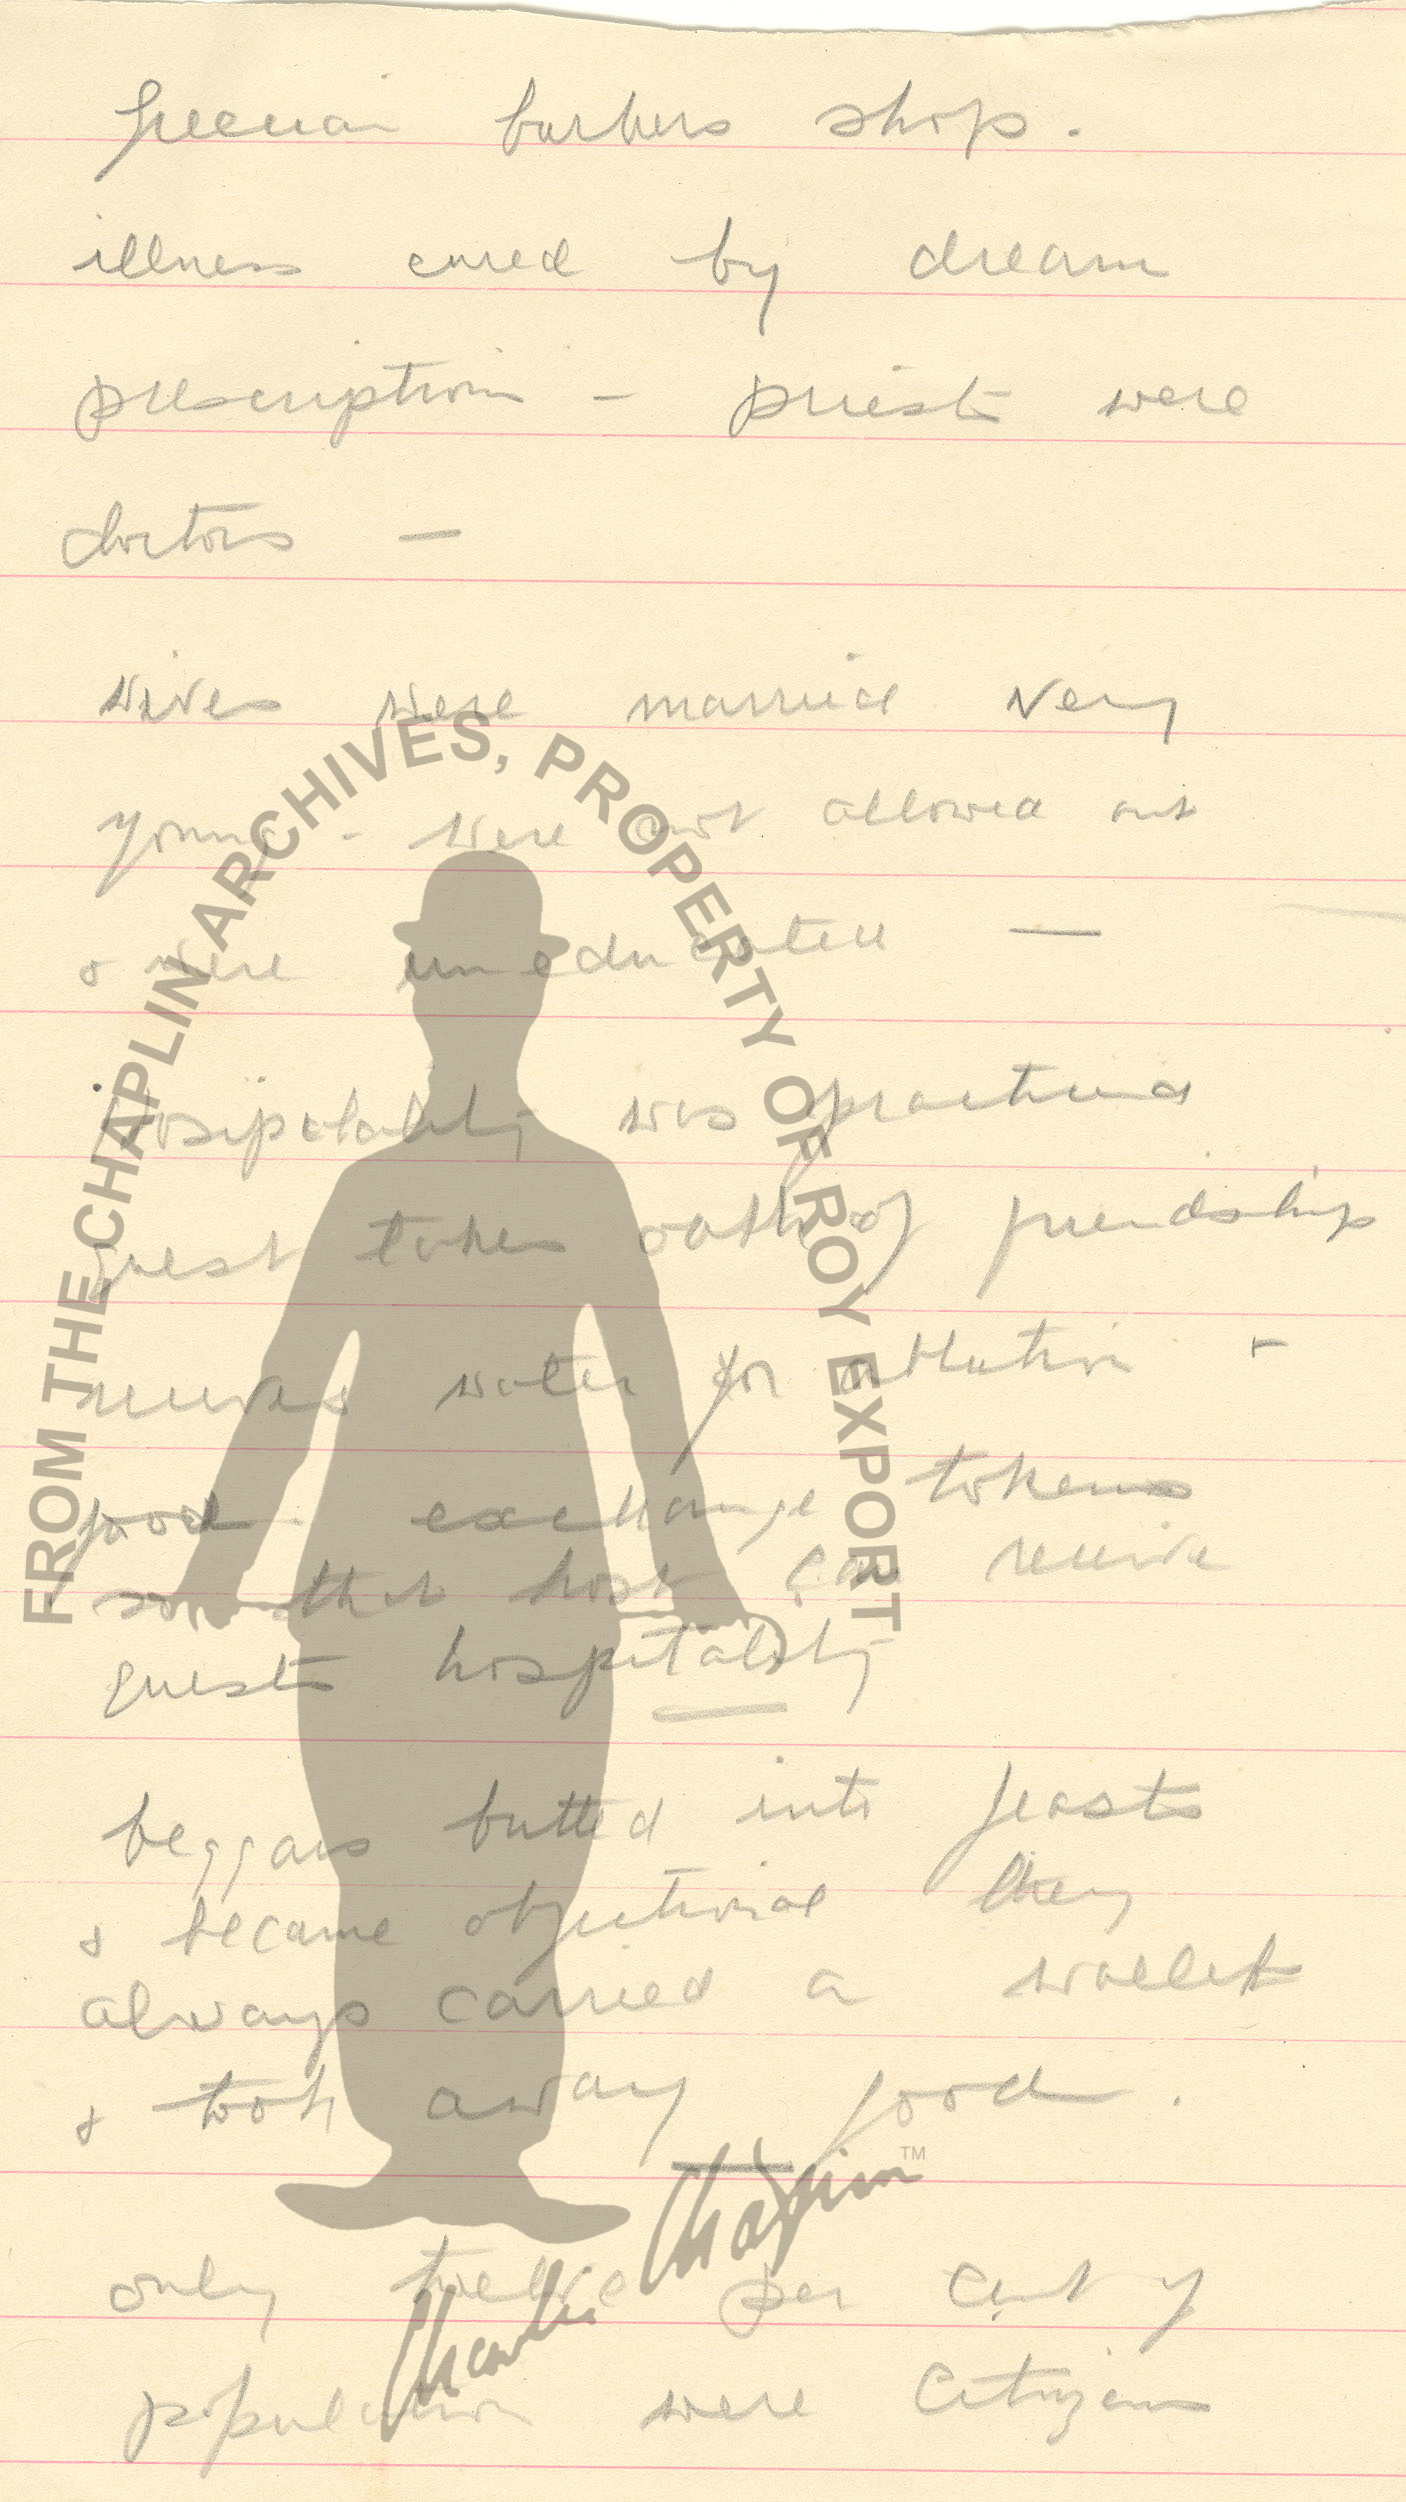 grecian barbers shop.
illness cured by dream
prescription - priests were
doctors —
wives were married very
young - were not allowed out
& were uneducated —
hosipatality was practiced
guest takes oath of friendship
receives water for ablution +
food - exchange tokens
so that host can receive
guests hospitality
beggars butted into feasts
& became objectional they
always carried a wallet
& took away food.
only twelve per cent of
population were Citizens
FROM THE CHAPLIN ARCHIVES, PROPERTY OF ROY EXPORT
Charlie Chaplin™